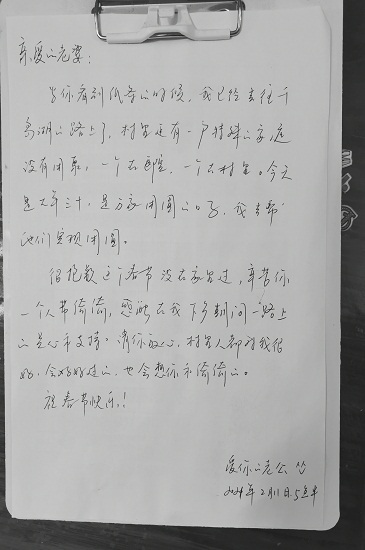 亲爱的老婆：
当你看到纸条的时候，我已经去往千
岛湖的路上了，村里还有一户特殊的家庭
没有团聚，一个在医院，一个在村里。今天
是大年三十，是万家团圆的日子，我去帮
他们实现团圆。
很抱歉这个春节没在家里过，辛苦你
一个人带倚倚，感谢在我下乡期间一路上
的关心和支持。请你放心，村里人都对我很
好，会好好过的，也会想你和倚倚的。
祝春节快乐！
爱你的老公
2021年2月11日.5点半